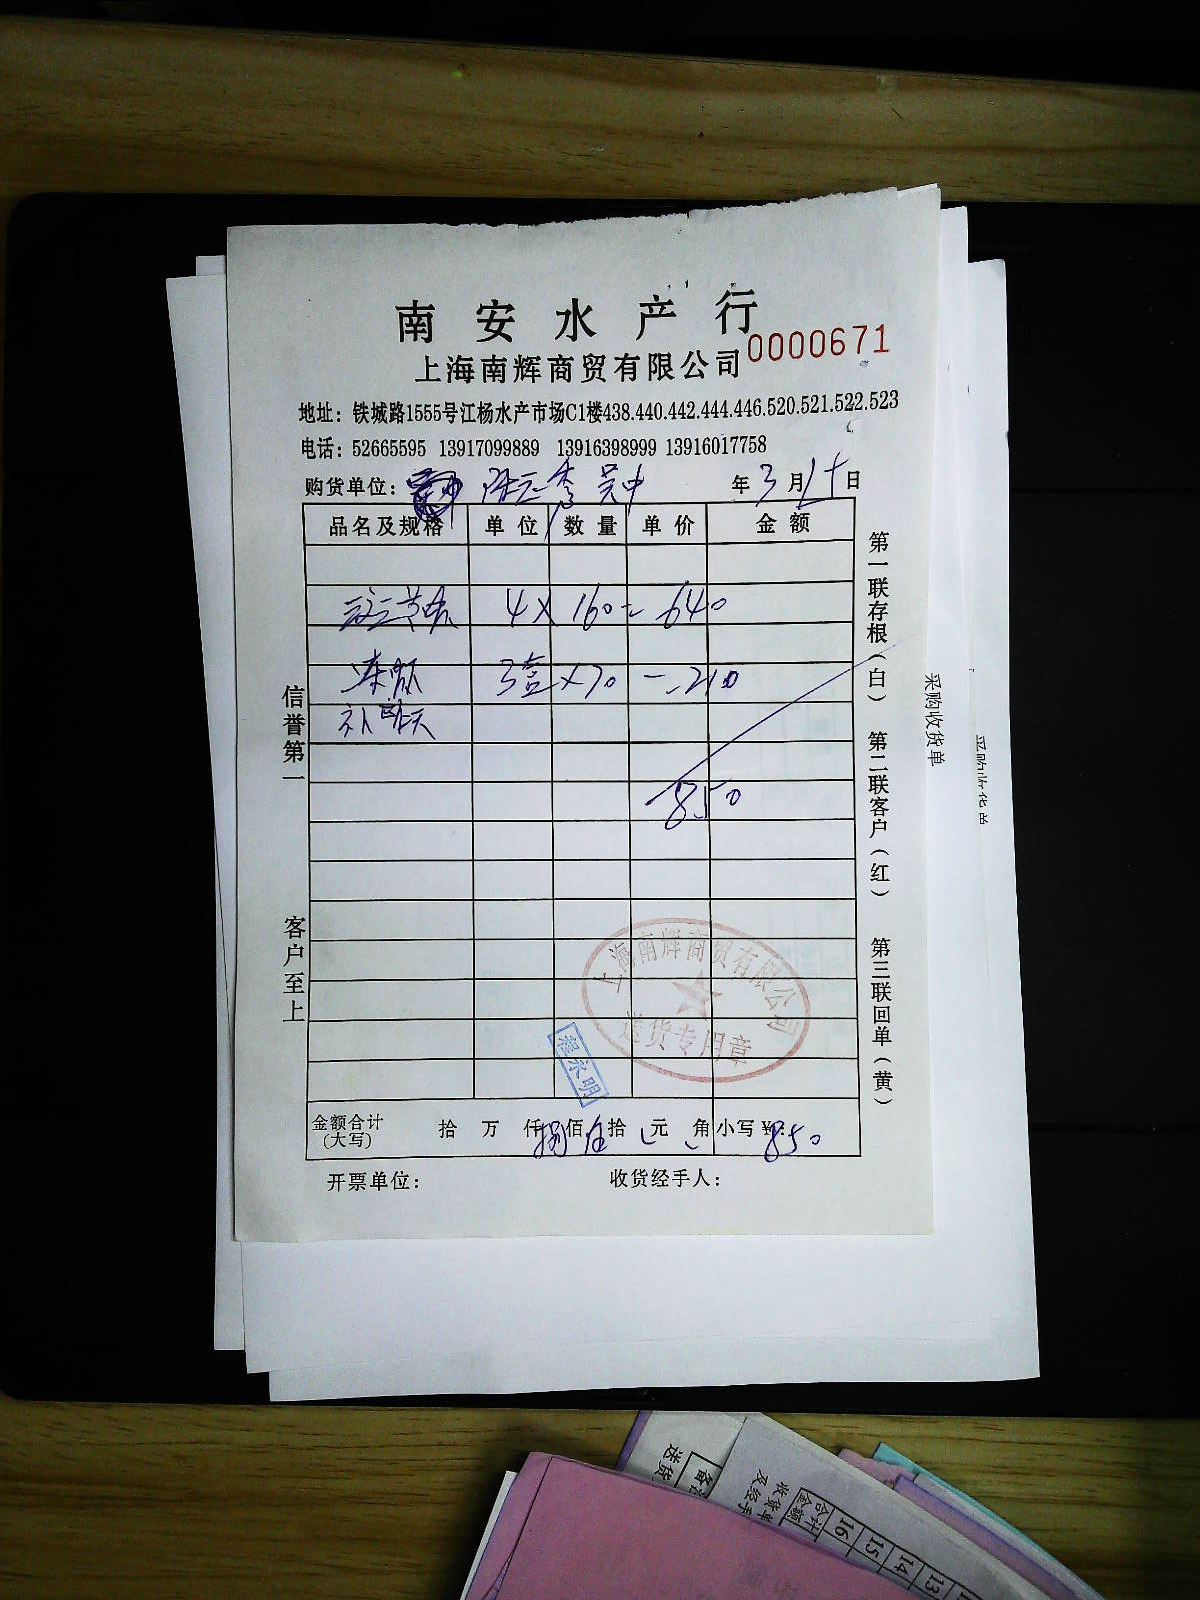 南安水产行
上海南辉商贸有限公司 0000671
地址：铁城路1555号江杨水产市场C1楼438.440.442.444.446.520.521.522.523
电话：52665595 13917099889 13916398999 13916017758
购货单位： 吴中 年3月15日
品名及规格 单位 数量 单价 金额
4×160=640
冻虾 3盒×70=210
补昨天
850
信誉第一 客户至上
第一联存根（白） 第二联客户（红） 第三联回单（黄）
上海南辉商贸有限公司
送货专用章
程永明
金额合计 拾 万 仟捌佰伍拾 元 角 小写￥：850
（大写）
开票单位： 收货经手人：
采购收货单
送货
备注
收货单
及经手
合计
金额
16
15
14
13